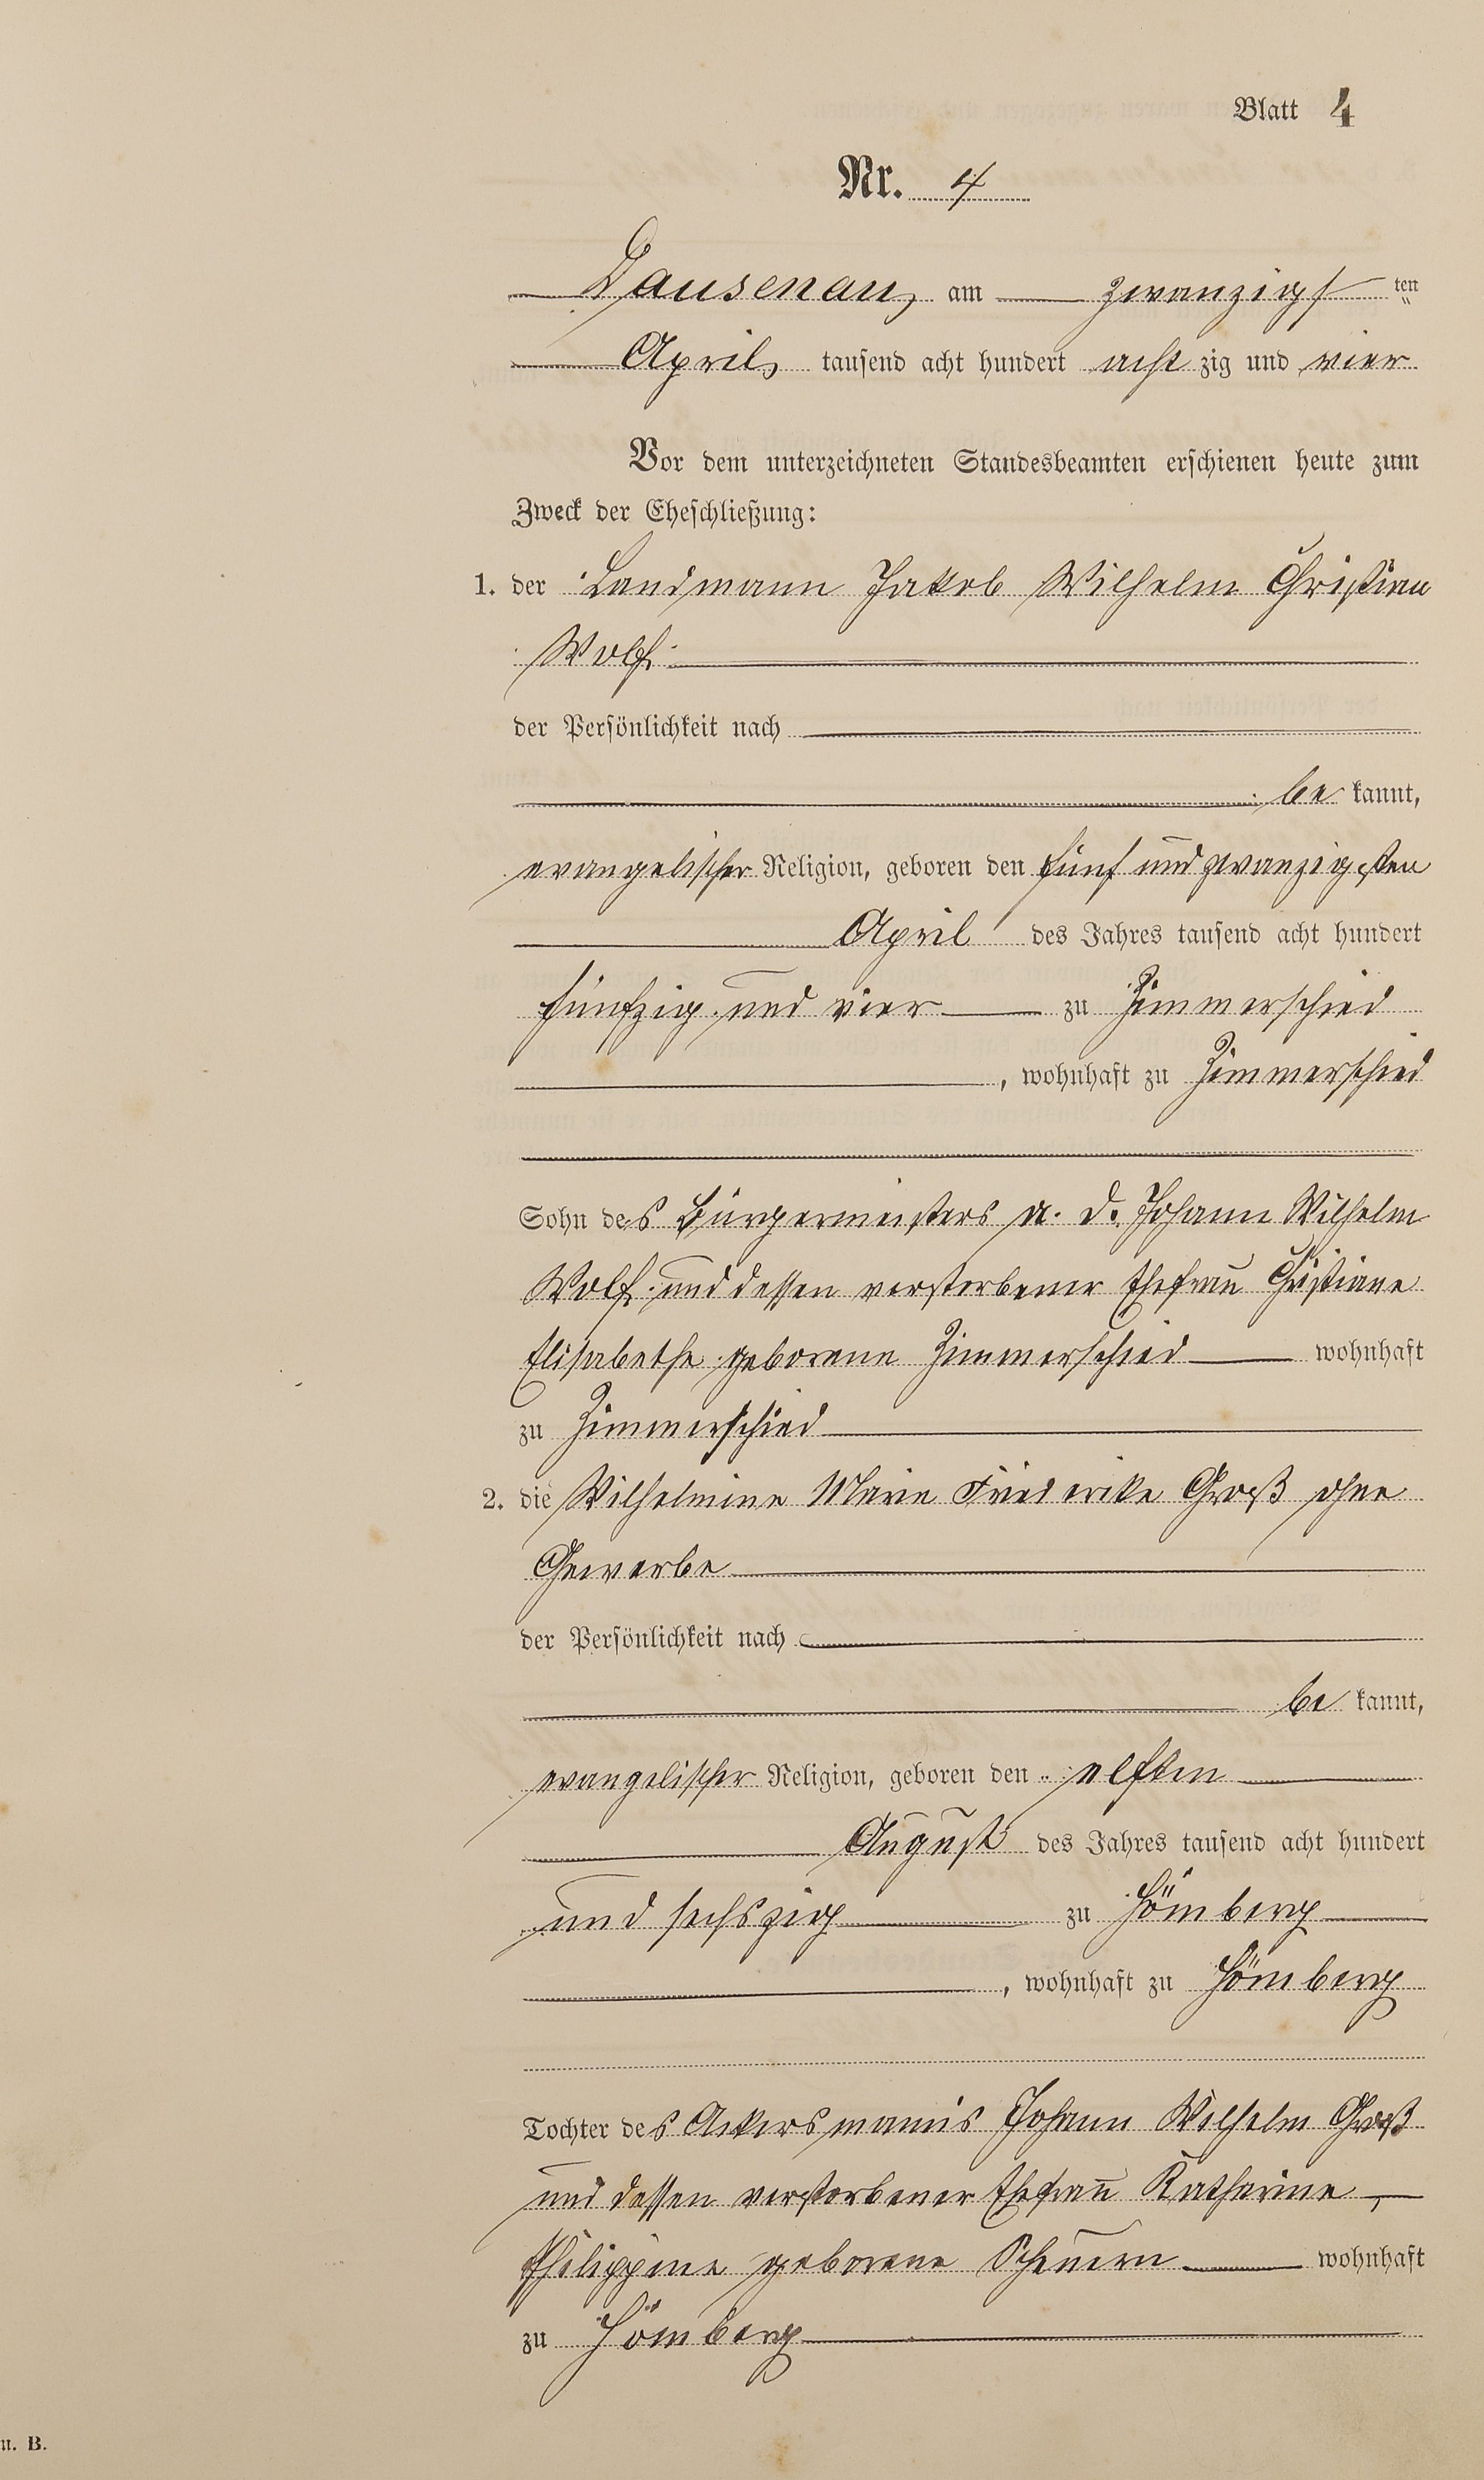 Blatt 4
Nr. 4
Dausenau, am zwanzigsten
April tausend acht hundert acht zig und vier
Vor dem unterzeichneten Standesbeamten erschienen heute zum
Zweck der Eheschließung:
1. der Landmann Jakob Wilhelm Christian
Wolf
der Persönlichkeit nach
be kannt,
evangelischer Religion, geboren den fünf und zwanzigsten
April des Jahres tausend acht hundert
fünfzig und vier zu Zimmerschied
, wohnhaft zu Zimmerschied
Sohn des Bürgermeisters a. D. Johann Wilhelm
Wolf und dessen verstorbener Ehefrau Christiane
Elisabethe geborene Zimmerschied wohnhaft
zu Zimmerschied
2. die Wilhelmine Marie Friederike Groß ohne
Gewerbe
der Persönlichkeit nach
be kannt,
evangelischer Religion, geboren den elften
August des Jahres tausend acht hundert
und sechszig zu Hömberg
, wohnhaft zu Hömberg
Tochter des Ackersmanns Johann Wilhelm Groß
und dessen verstorbener Ehefrau Katharine
Philippine geborene Scheuern wohnhaft
zu Hömberg
u. B.